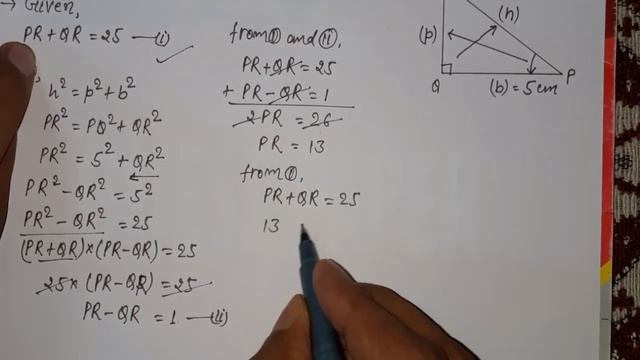 → Given,
PR + QR = 25 — (i)
h² = p² + b²
PR² = PQ² + QR²
PR² = 5² + QR²
PR² - QR² = 5²
PR² - QR² = 25
(PR + QR) × (PR - QR) = 25
25 × (PR - QR) = 25
PR - QR = 1 — (ii)
from (i) and (ii),
PR + QR = 25
+ PR - QR = 1
2PR = 26
PR = 13
from (i),
PR + QR = 25
13
(p)
(h)
Q
P
(b) = 5 cm